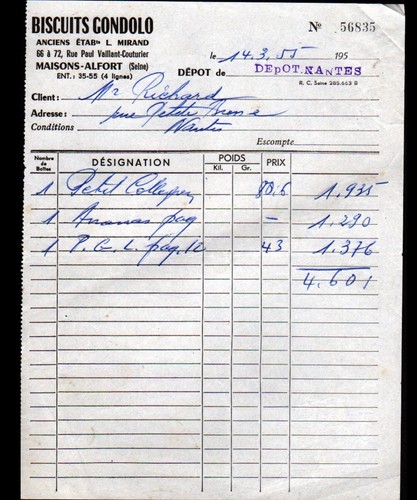 BISCUITS GONDOLO
ANCIENS ÉTABts L. MIRAND
66 à 72, Rue Paul Vaillant-Couturier
MAISONS-ALFORT (Seine)
ENT.: 35-55 (4 lignes)
No 56835
le 14.3.55 195
DÉPÔT de DEPOT.NANTES
R. C. Seine 285.653 B
Client: Mr Richard
Adresse: rue Petite
Conditions Nantes
Escompte
Nombre de Boîtes DÉSIGNATION POIDS Kil. Gr. PRIX
1 Petit 80.6 1.935
1 Ananas paq - 1.290
1 P. G. L. paq. 12 43 1.376
4.601